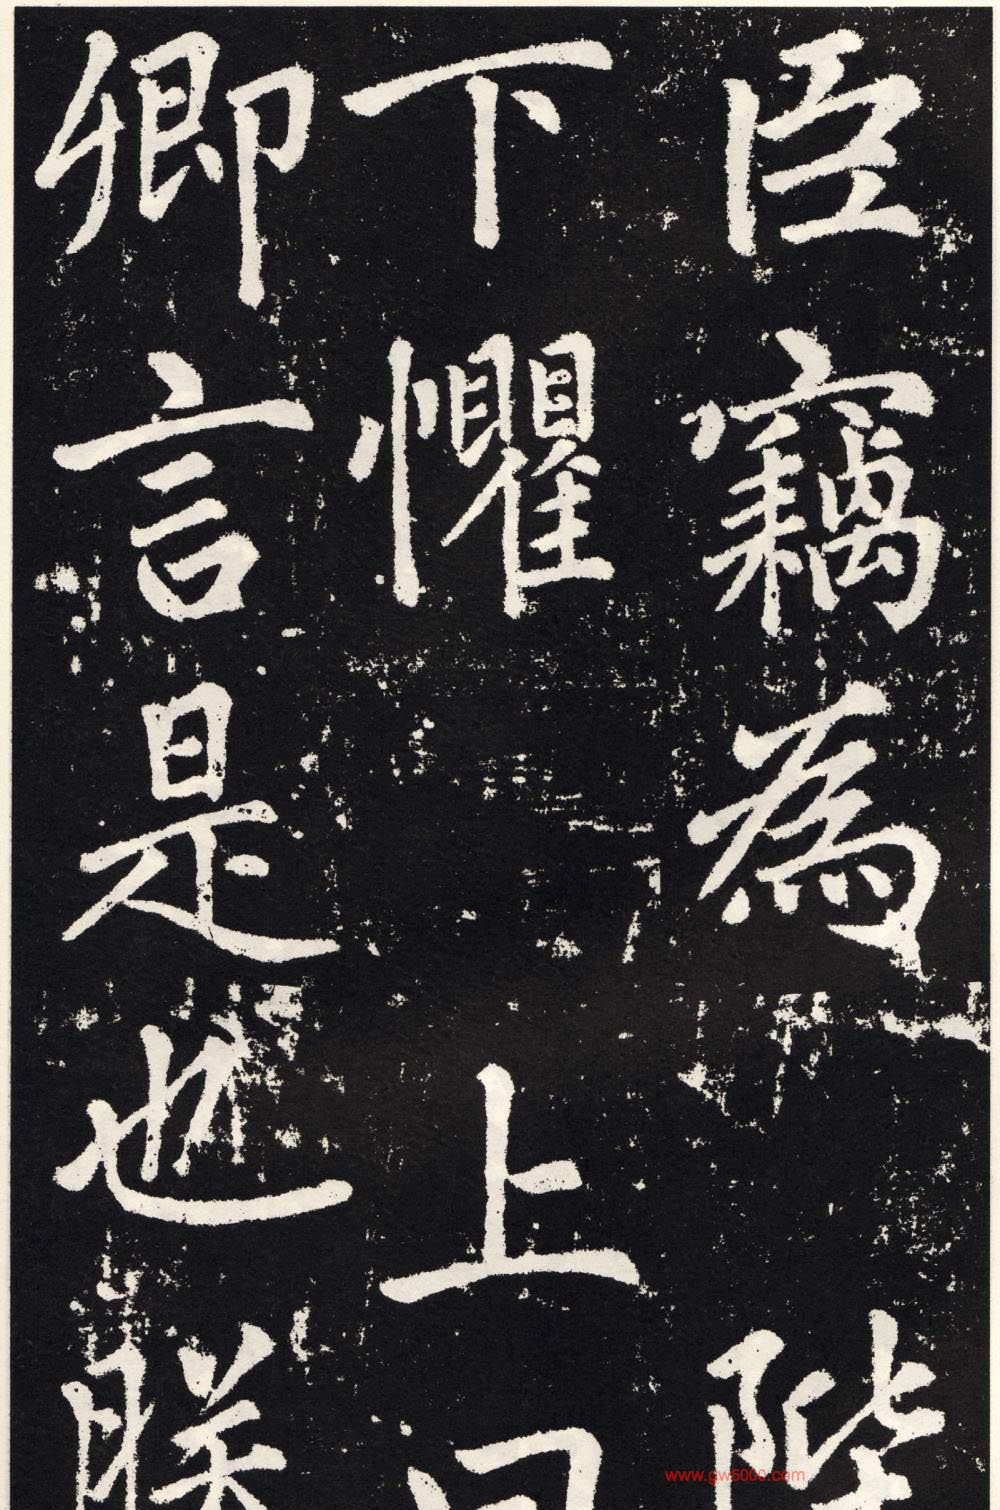 臣竊為陛
下懼上曰
卿言是也朕
www.gw5000.com